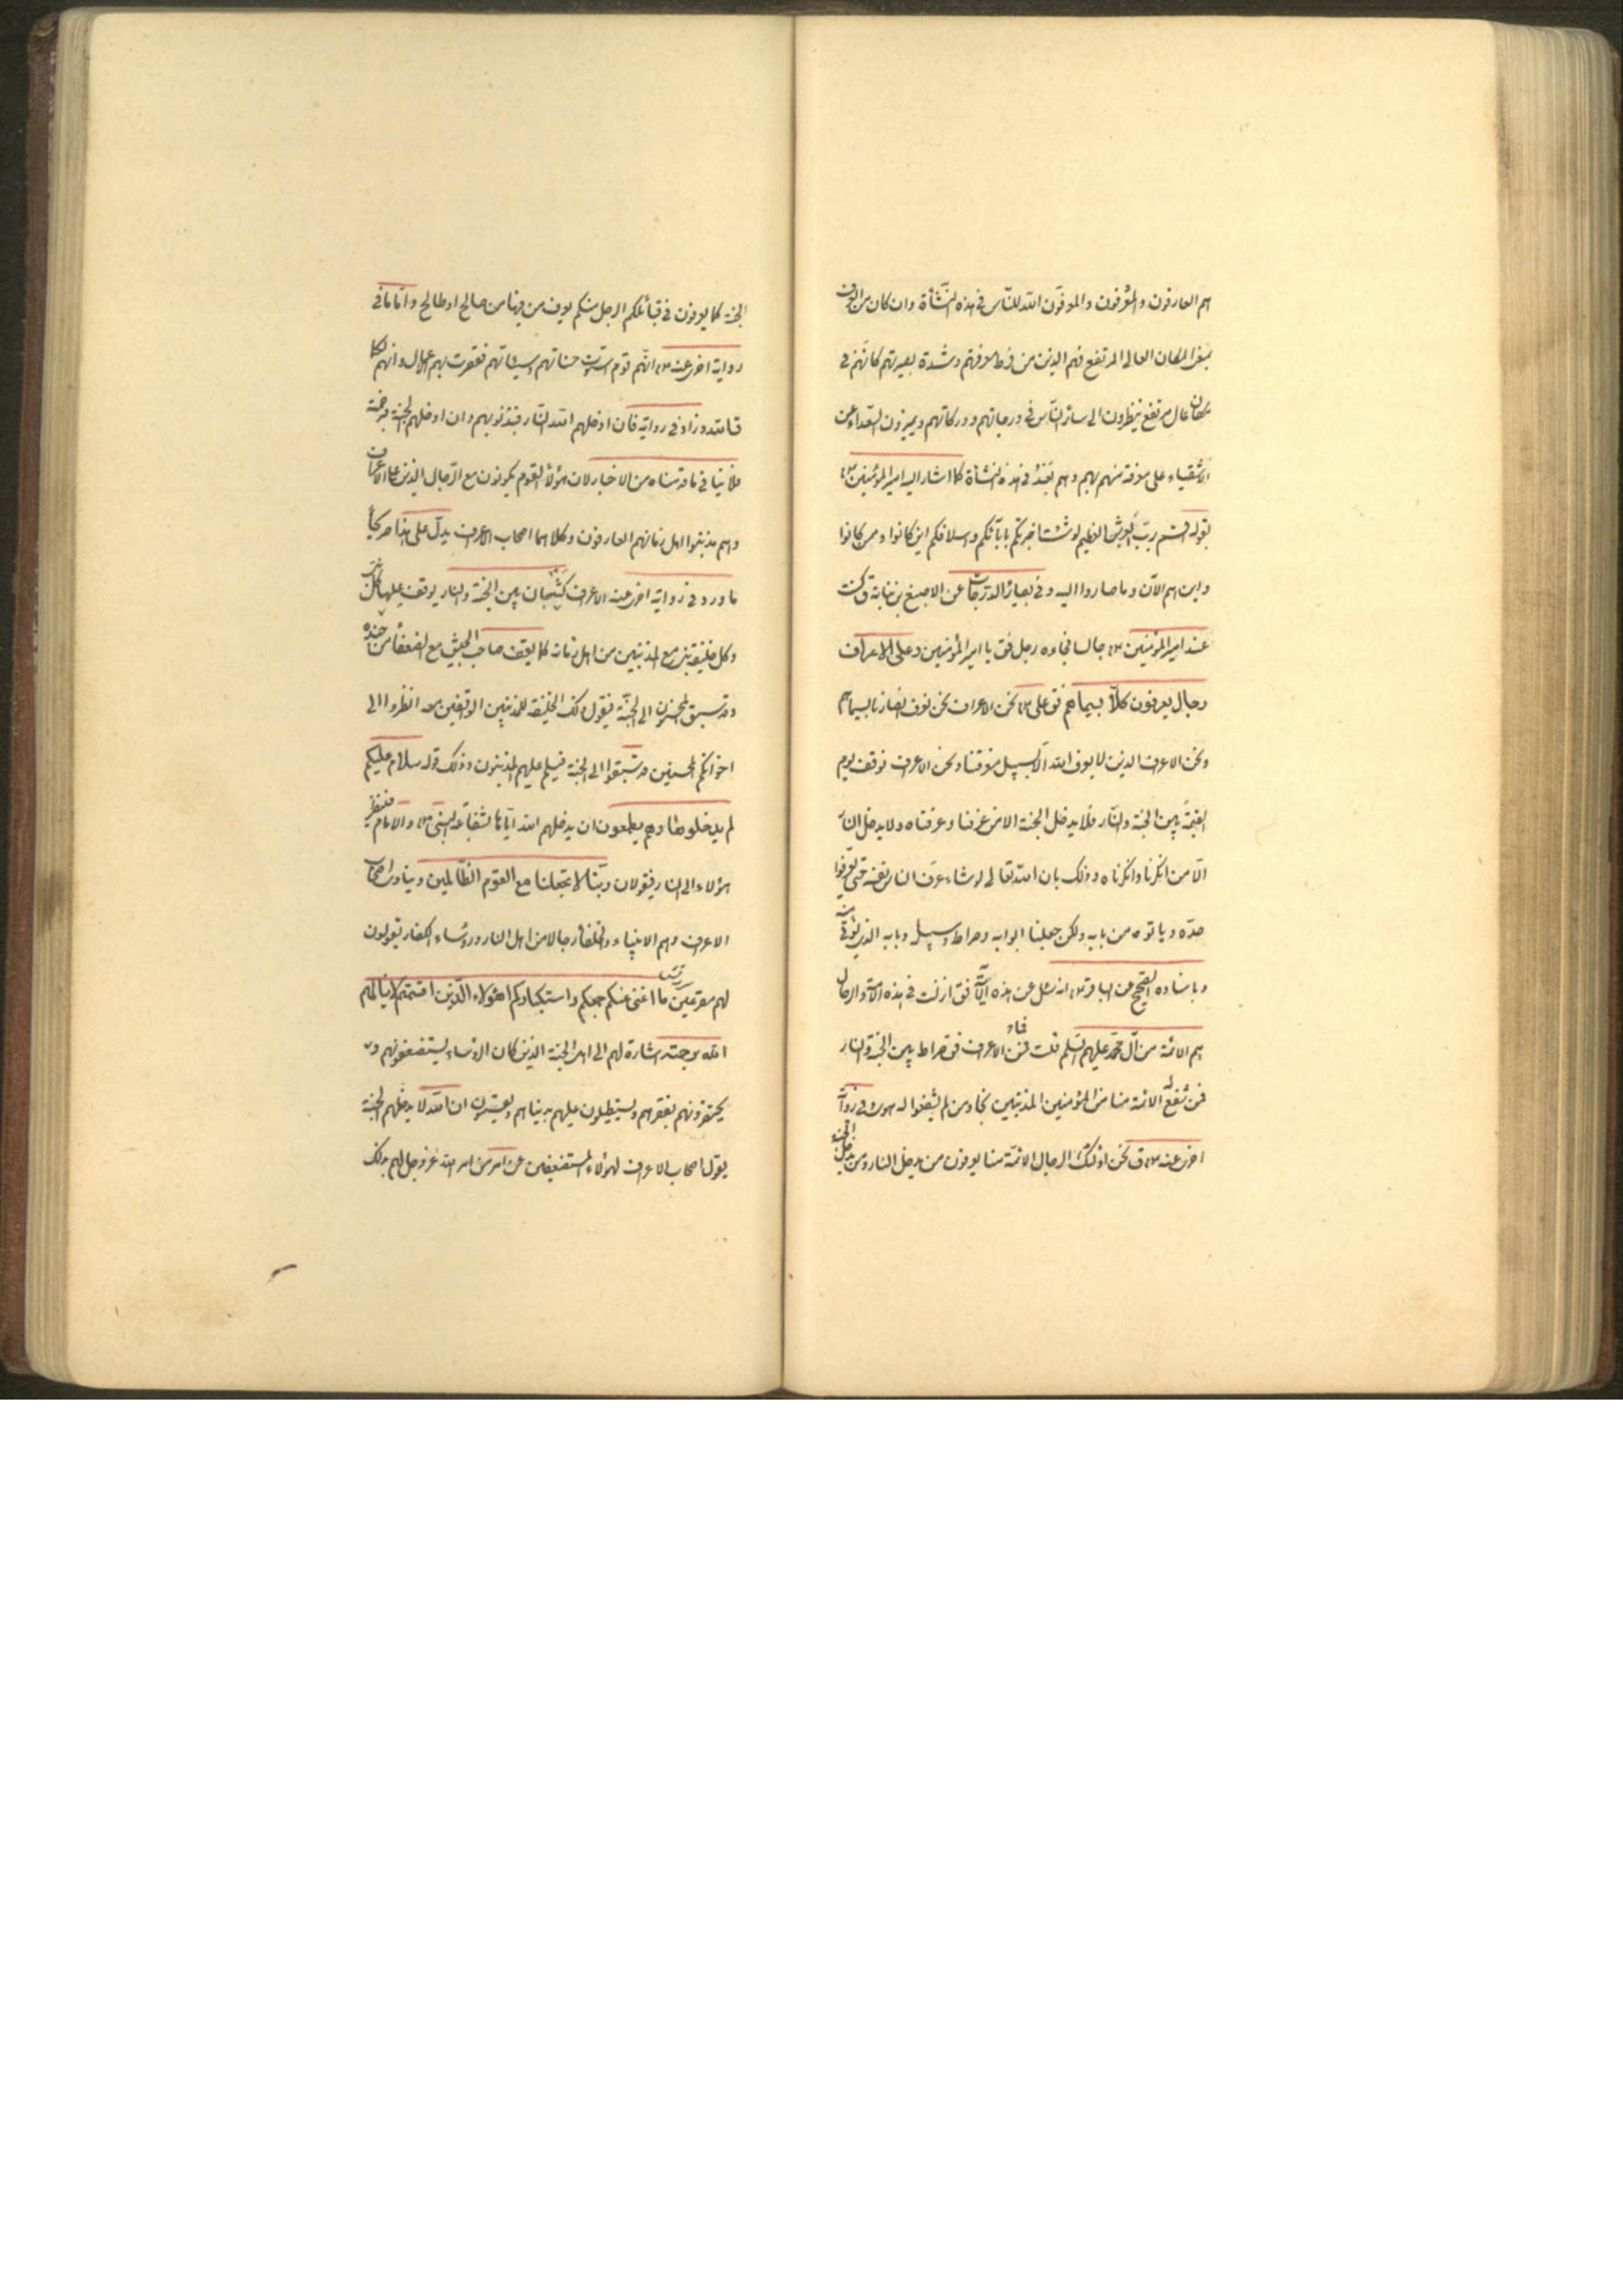 هم العارفون والمعرفون والموقون الله للناس في هذه النشأة وان كان من العرف
بمعنى المكان العالى المرتفع فهم الذين من فرط معرفتهم وشدة بصيرتهم كانهم في
مكان عال مرتفع ينظرون الى سائر الناس في درجاتهم ودركاتهم ويميزون السعداء عن
الاشقياء على معرفة منهم بهم وهم بعد في هذه النشأة كما اشار اليه امير المؤمنين ع
بقوله اقسم برب العرش العظيم لو شئت اخبرتكم بابائكم واسلافكم اين كانوا وممن كانوا
واين هم الآن وما صاروا اليه وفى بصائر الدرجات عن الاصبغ بن نباتة ق كنت
عند امير المؤمنين ع جالسا فجاءه رجل فق يا امير المؤمنين وعلى الاعراف
رجال يعرفون كلا بسيماهم فق على ع نحن الاعراف نحن نعرف انصارنا بسيماهم
ونحن الاعراف الذين لا يعرف الله الا بسبيل معرفتنا ونحن الاعراف نوقف يوم
القيمة بين الجنة والنار فلا يدخل الجنة الا من عرفنا وعرفناه ولا يدخل النار
الا من انكرنا وانكرناه وذلك بان الله تعالى لو شاء عرف الناس نفسه حتى يعرفوا
حده وياتوه من بابه ولكن جعلنا ابوابه وصراطه وسبيله وبابه الذى يؤتى منه
وباسناده الصحيح عن الباقر ع انه سئل عن هذه الآية فق انزلت في هذه الامة والرجال
هم الائمة من آل محمد عليهم السلم قلت فما الاعراف فق صراط بين الجنة والنار
فمن شفع له الائمة منا من المؤمنين المذنبين نجا ومن لم يشفعوا له هوى وفي رواية
اخرى عنه ع ق نحن اولئك الرجال الائمة منا يعرفون من يدخل النار ومن يدخل الجنة
الجنة كما يعرفون في قبائلكم الرجل منكم يعرف من فيها من صالح او طالح واما ما في
رواية اخرى عنه ع انهم قوم استوت حسناتهم وسيئاتهم فقصرت بهم الاعمال وانهم لكما
قال الله وزاد في رواية فان ادخلهم الله النار فبذنوبهم وان ادخلهم الجنة فبرحمته
فلا ينافى ما قدمناه من الاخبار لان هؤلاء القوم يكونون مع الرجال الذين على الاعراف
وهم مذنبوا اهل زمانهم العارفون وكلاهما اصحاب الاعراف يدل على هذا صريحا
ما ورد في رواية اخرى عنه الاعراف كثبان بين الجنة والنار يوقف عليها كل نبى
وكل خليفة نبى مع المذنبين من اهل زمانه كما يقف صاحب الجيش مع الضعفاء من جنده
وقد سبق المحسنون الى الجنة فيقول ذلك الخليفة للمذنبين الواقفين معه انظروا الى
اخوانكم المحسنين قد سبقوا الى الجنة فيسلم عليهم المذنبون وذلك قوله سلام عليكم
لم يدخلوها وهم يطمعون ان يدخلهم الله اياها بشفاعة النبى ع والامام فينظر
هؤلاء الى النار فيقولان ربنا لا تجعلنا مع القوم الظالمين وينادى اصحاب
الاعراف وهم الانبياء والخلفاء رجالا من اهل النار ورؤساء الكفار يقولون
لهم مقرعين ما اغنى عنكم جمعكم واستكباركم اهؤلاء الذين اقسمتم لا ينالهم
الله برحمته اشارة لهم الى اهل الجنة الذين كان الرؤساء يستضعفونهم و
يحتقرونهم بفقرهم ويستطيلون عليهم بدنياهم ويقسمون ان الله لا يدخلهم الجنة
يقول اصحاب الاعراف لهؤلاء المستضعفين عن امر من امر الله عز وجل لهم بذلك